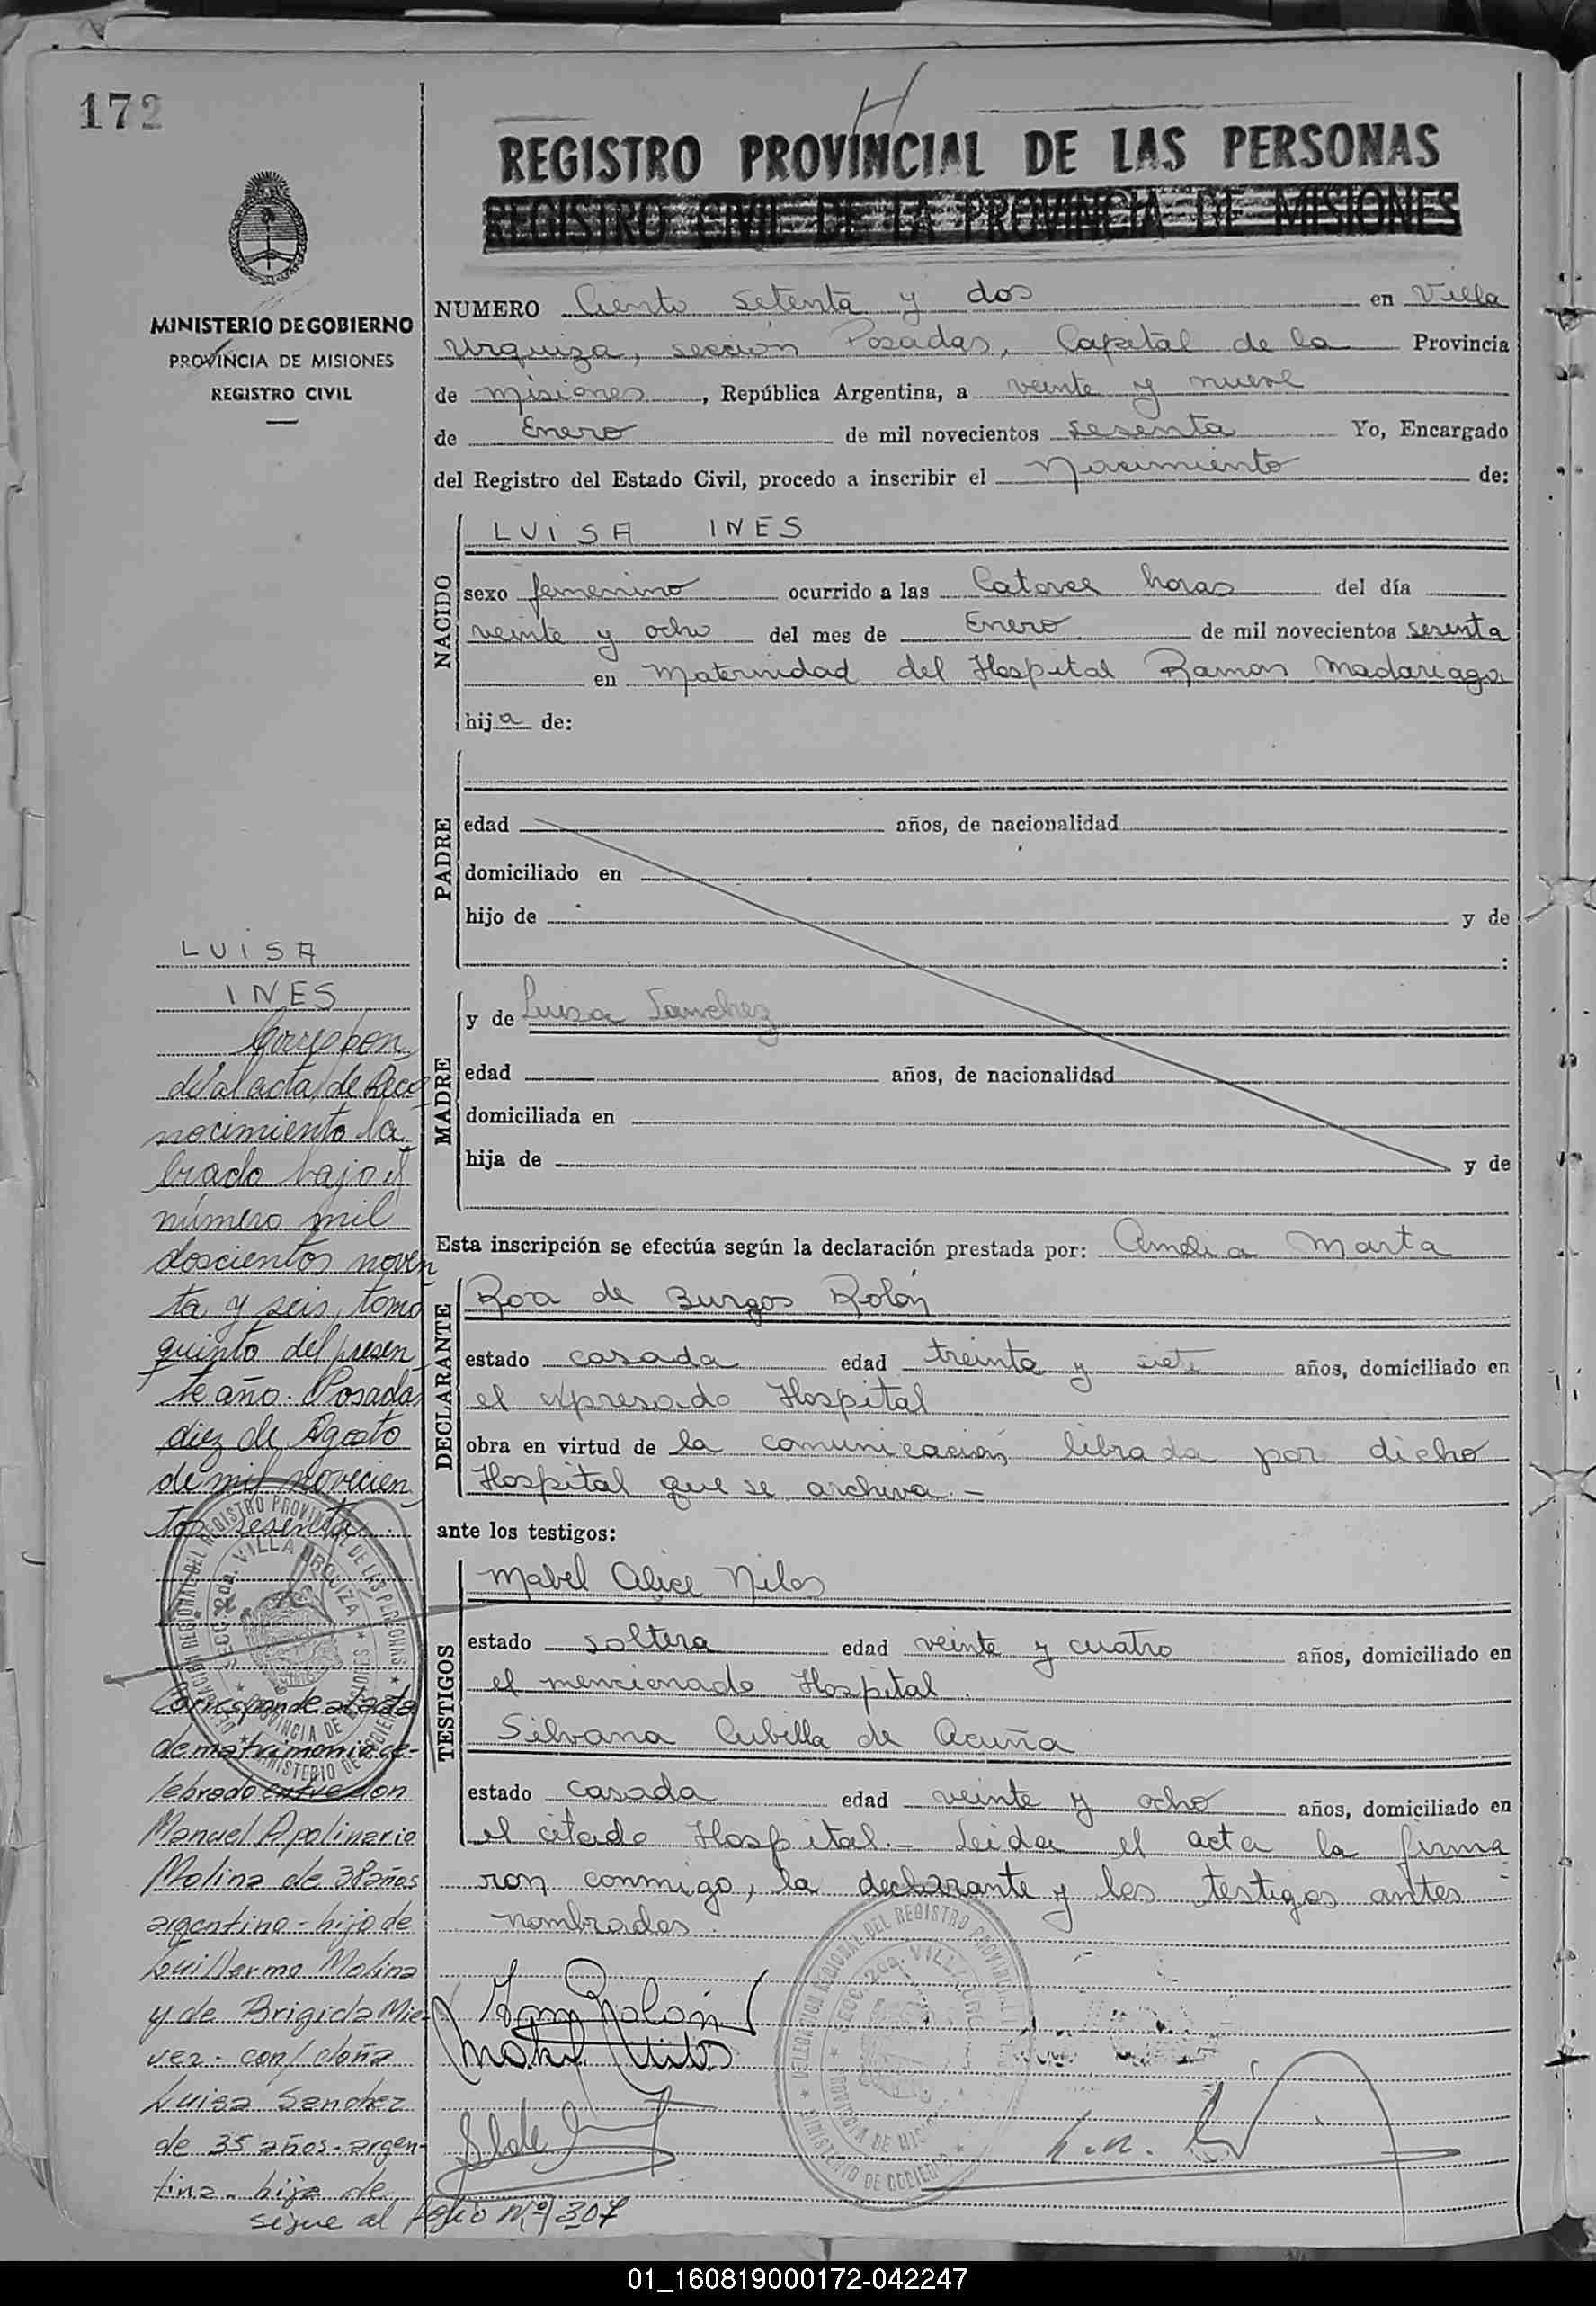 172
REGISTRO PROVINCIAL DE LAS PERSONAS
REGISTRO CIVIL DE LA PROVINCIA DE MISIONES
MINISTERIO DE GOBIERNO
PROVINCIA DE MISIONES
REGISTRO CIVIL
NUMERO Ciento setenta y dos en Villa
Urquiza, sección Posadas, Capital de la Provincia
de Misiones, República Argentina, a veinte y nueve
de Enero de mil novecientos sesenta Yo, Encargado
del Registro del Estado Civil, procedo a inscribir el Nacimiento de:
NACIDO
LUISA INES
sexo femenino ocurrido a las Catorce horas del día
veinte y ocho del mes de Enero de mil novecientos sesenta
en Maternidad del Hospital Ramon Madariaga
hija de:
PADRE
edad años, de nacionalidad
domiciliado en
hijo de y de
:
MADRE
y de Luisa Sanchez
edad años, de nacionalidad
domiciliada en
hija de y de
Esta inscripción se efectúa según la declaración prestada por: Amelia Marta
DECLARANTE
Roa de Burgos Rolón
estado casada edad treinta y siete años, domiciliado en
el expresado Hospital
obra en virtud de la comunicación librada por dicho
Hospital que se archiva.-
ante los testigos:
TESTIGOS
Mabel Alice Nilos
estado soltera edad veinte y cuatro años, domiciliado en
el mencionado Hospital.
Silvana Cubilla de Acuña
estado casada edad veinte y ocho años, domiciliado en
el citado Hospital.- Leida el acta la firma
ron conmigo, la declarante y los testigos antes
nombrados.
LUISA
INES
Correspon
de al acta de Reco
nocimiento la
brado bajo el
número mil
doscientos noven
ta y seis, tomo
quinto del presen
te año. Posadas
diez de Agosto
de mil novecien
tos sesenta.
Corresponde al acta
de matrimonio ce-
lebrado entre don
Manuel Apolinario
Molina de 38 años
argentino - hijo de
Guillermo Molina
y de Brigida Mie-
vez - con/ doña
Luisa Sanchez
de 35 años - argen-
tina - hija de
sigue al folio Nº 307
DELEGACION REGIONAL DEL REGISTRO PROVINCIAL DE LAS PERSONAS
SECC. 2da. VILLA URQUIZA
PROVINCIA DE MISIONES
MINISTERIO DE GOBIERNO
DELEGACION REGIONAL DEL REGISTRO PROVINCIAL
SECC. 2da. VILLA URQ
PROVINCIA DE MIS
MINISTERIO DE GOBIERNO
01_160819000172-042247